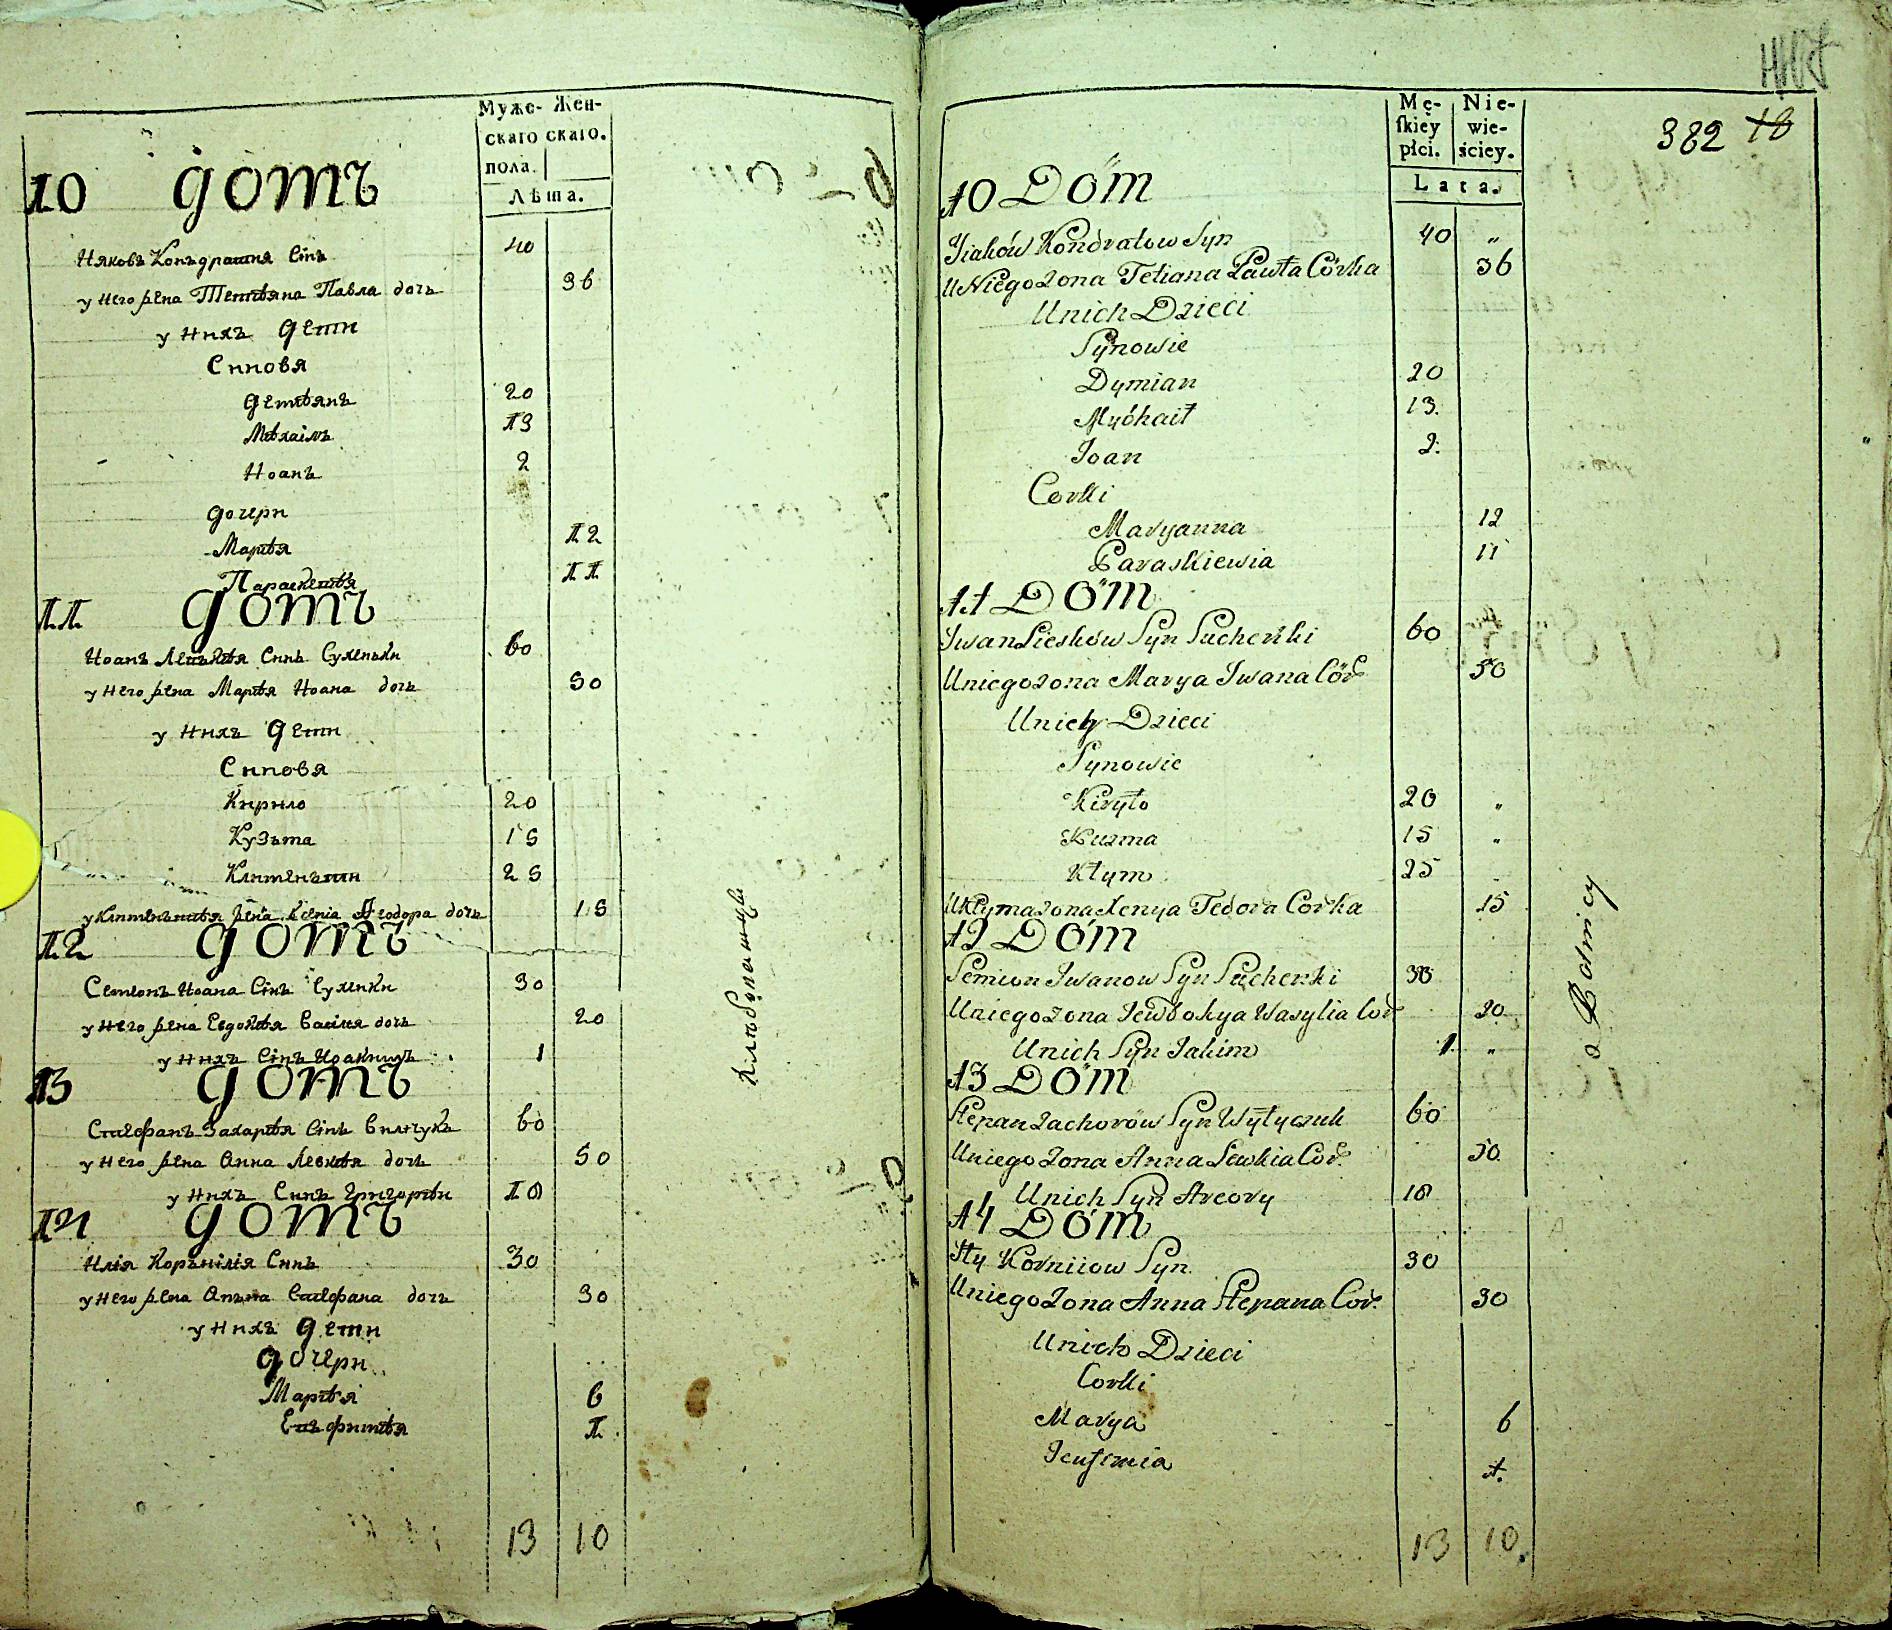 Муже- Жен-
скаго скаго.
пола.
Лѣта.
10 домъ
Ияковъ Конъдратия Сiнъ 40
у него жена Тетѣяна Павла дочь 36
у нихъ дети
Синовя
Демѣянъ 20
Мѣхаiлъ 13
Иоанъ 2
дочери
Марѣя 12
Параскевѣя 11
11 домъ
Иоанъ Лесъкѣя Синъ Сухенъки 60
у него жена Марѣя Иоана дочь 50
у нихъ дети
Синовя
Кирило 20
Кузъма 15
Климентии 25
у Климентѣя жена Ксенiа Феодора дочь 15
12 домъ
Семионъ Иоана Сiнъ Сухенки 30
у него жена Евдокѣя Василя дочь 20
у нихъ Сiнъ Иоакимъ 1
13 домъ
Стефанъ Захарѣя Сiнъ Вилчукъ 60
у него жена Анна Левкѣя дочь 50
у нихъ Синъ Григорѣи 10
14 домъ
Илiя Коръниiлiя Синъ 30
у него жена Анъна Стефана дочь 30
у нихъ дети
дочери
Марѣя 6
Еѵъфимѣя 1
13 10
Mę-
skiey
płci.
Nie-
wie-
ściey.
Lata.
382 18
10 Dóm
Jiaków Kondratow Syn 40 „
U Niego żona Tetiana Pawła Córka 36
Unich Dzieci
Synowie
Dymian 20
Myóhaił 13.
Joan 2.
Corki
Maryanna 12
Paraskiewia 11
11 Dóm
Jwan Lieskow Syn Suchenki 60
Uniego żona Marya Jwana Cór 50
Unich Dzieci
Synowie
Kiryło 20 „
Kuzma 15 „
Kłym 25
U Kłyma żona Xenya Fedora Corka 15
12 Dóm
Semion Jwanow Syn Suchenki 30
Uniego żona Jewdokya Wasylia Cor 20
Unich Syn Jakim 1. „
13 Dóm
Stepan Zachorów Syn Wyłyczuk 60
Uniego żona Anna Lewkia Cor. 50
Unich Syn Areory 10
14 Dóm
Jły Korniiow Syn 30
Uniego żona Anna Stepana Cor. 30
Unich Dzieci
Corki
Marya 6
Jeufimia 1.
13 10.